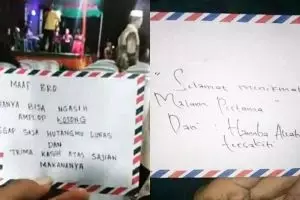 MAAF BRO
HANYA BISA NGASIH
AMPLOP KOSONG
SAJA HUTANGMU LUNAS
DAN
TRIMA KASIH ATAS SAJIAN
MAKANANYA
"Selamat menikmat
Malam Pertama"
Dari Hamba Allah
tersakiti